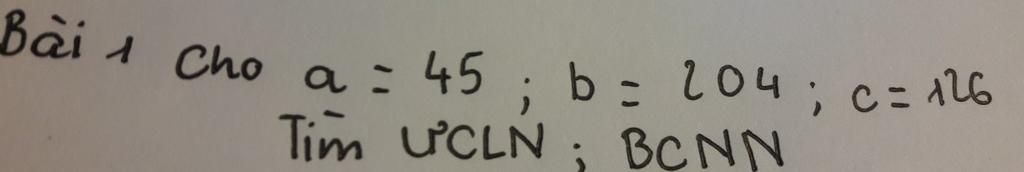 Bài 1 Cho a = 45 ; b = 204 ; c = 126
Tìm ƯCLN ; BCNN